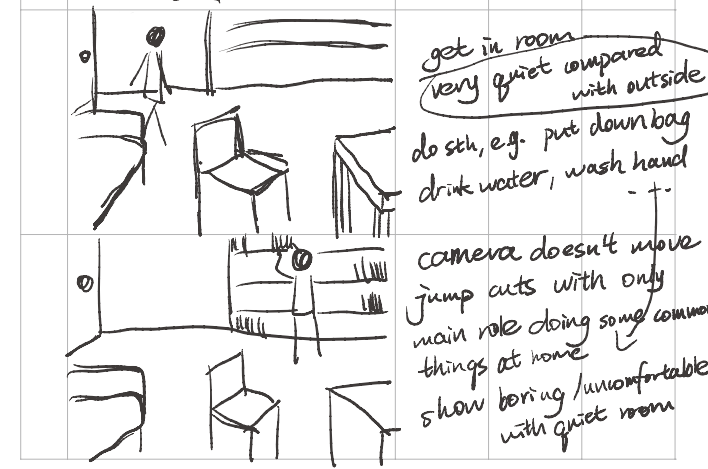 get in room
very quiet compared
with outside
do sth, e.g. put down bag
drink water, wash hand
camera doesn't move
jump cuts with only
main role doing some common
things at home
show boring / uncomfortable
with quiet room